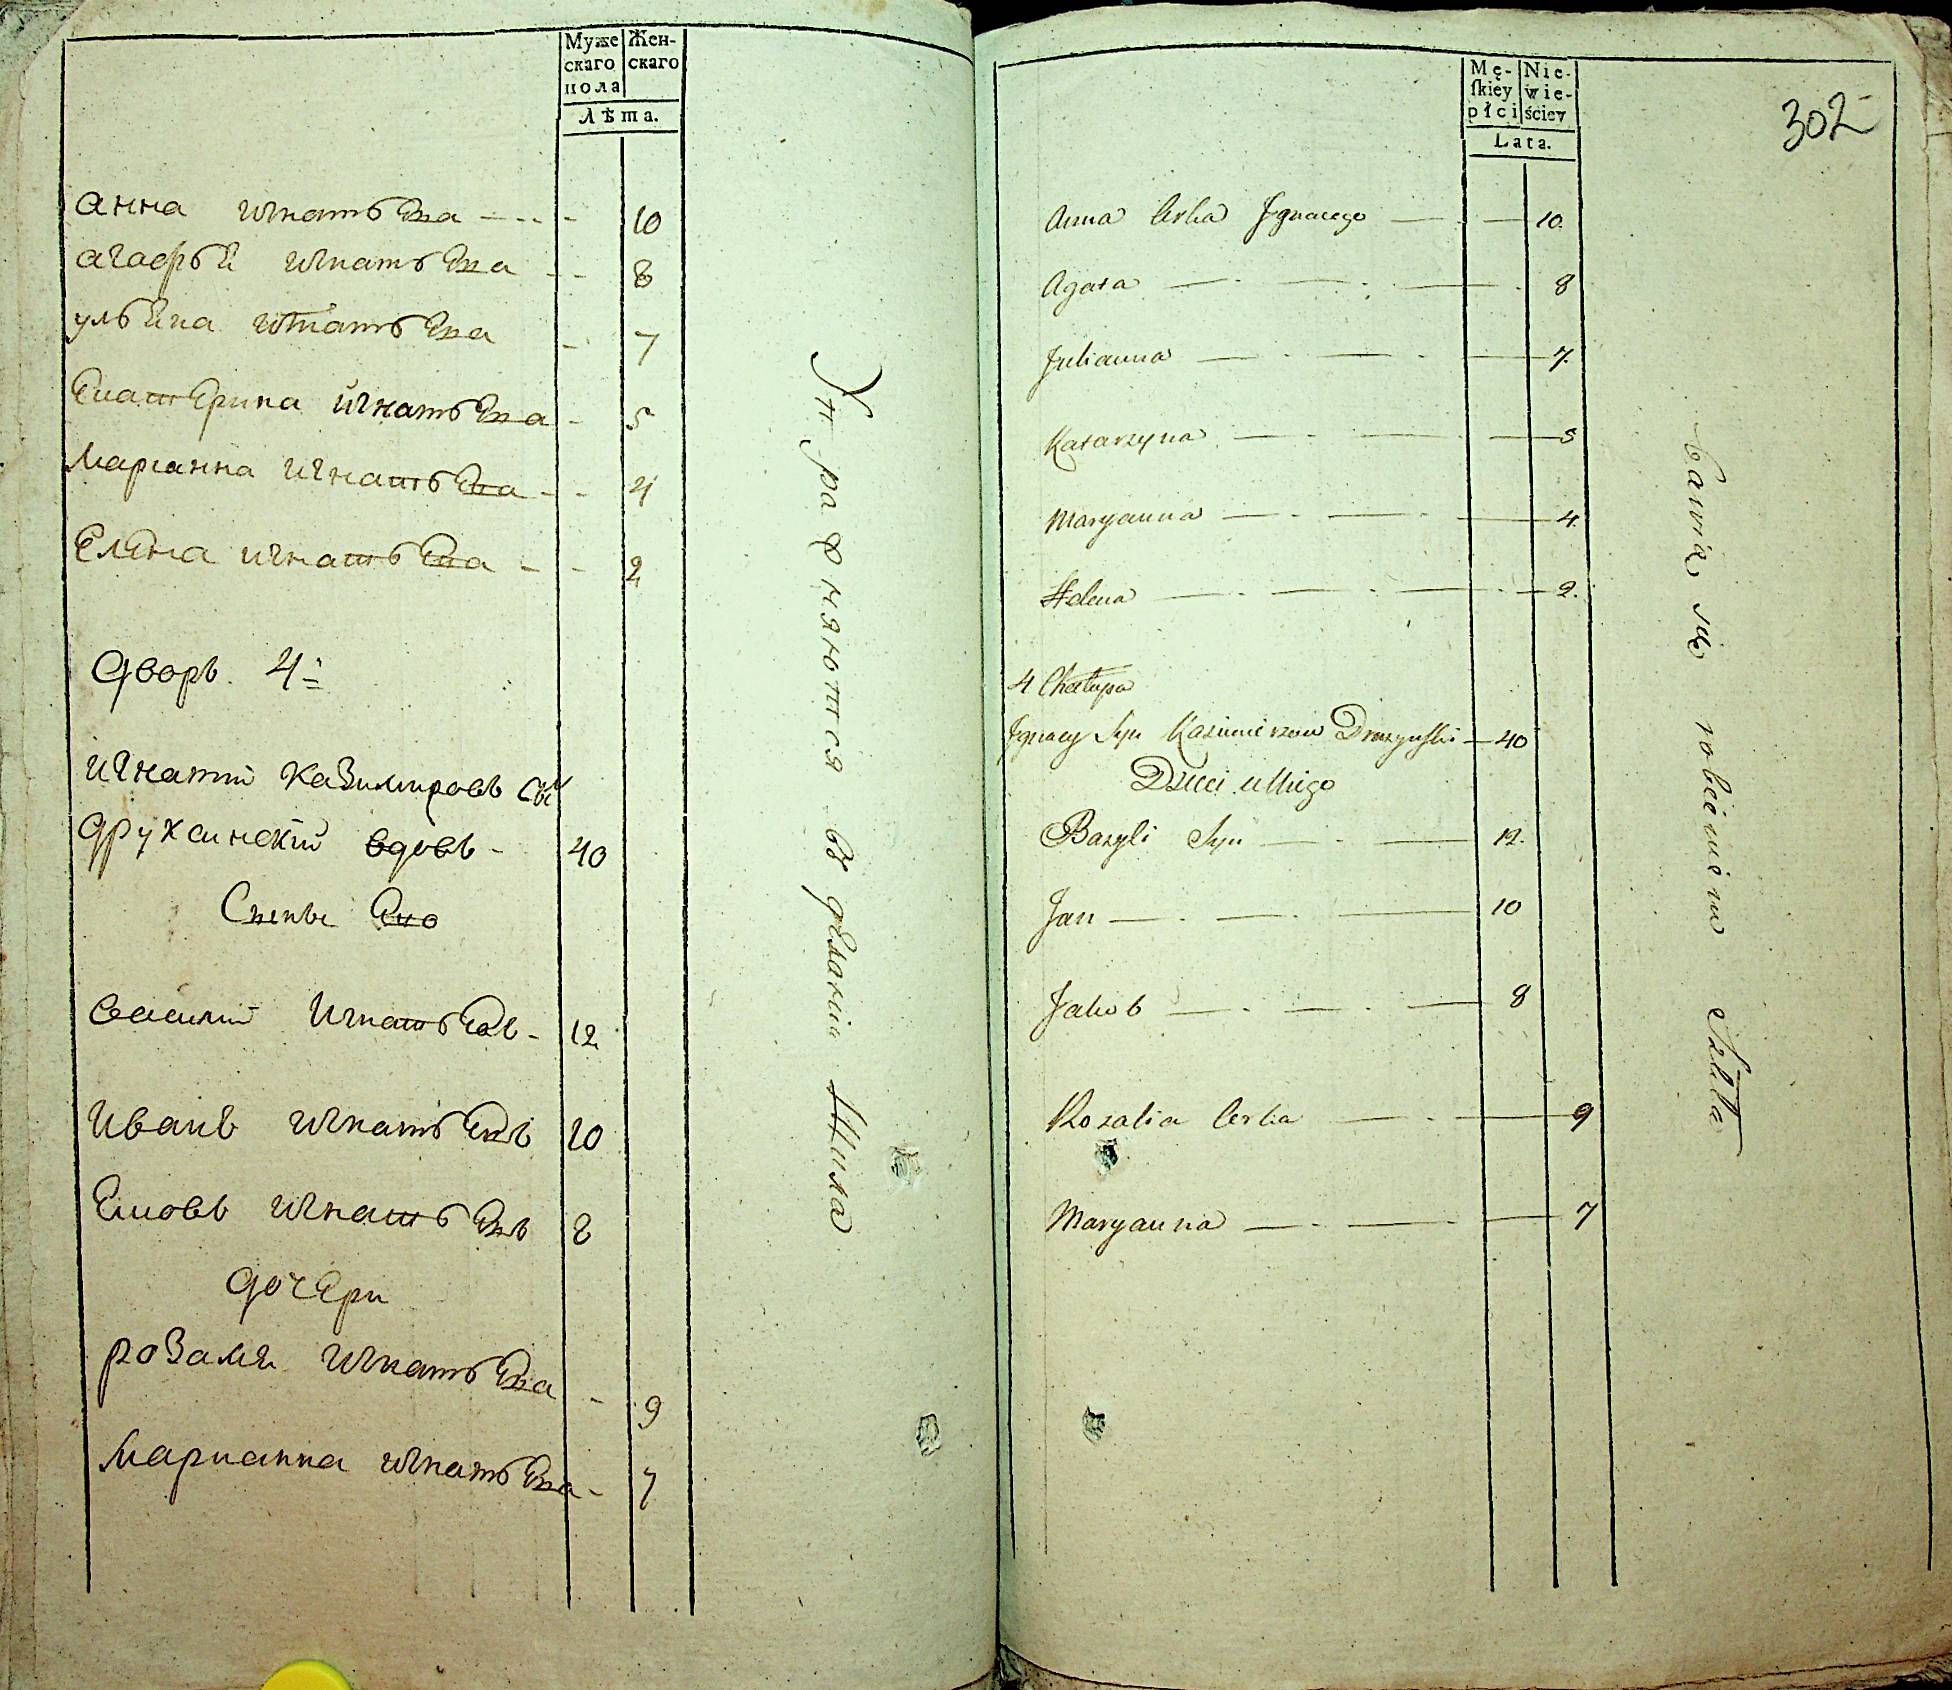 Муже
скаго
пола
Жен-
скаго
Лѣта.
Анна игнатьева 10
агафьѣ игнатьева 8
ульяна игнатьева 7
Екатерина игнатьева 5
Марианна игнатьева 4
Елена игнатьева 2
дворъ 4й
игнатий казимировъ сы
друхсинский вдовъ 40
василий Игнатьевъ 12
Иванъ игнатьевъ 10
Яковъ игнатьевъ 8
дочери
розалия игнатьева 9
Марианна игнатьева 7
Упражняются въ деланіи
302
Mę-
skiey
płci
Nie-
wie-
ściey
Lata.
Anna Corka Jgnacego 10.
Agata 8
Julianna 7.
Katarzyna 5
Maryanna 4
Helena 2.
4 Chałupa
Jgnacy Syn Kazimierzow 40
Dzieci u Niego
Bazyli Syn 12.
Jan 10
Jakob 8
Rozalia Corka 9
Maryanna 7
bawią się robieniem